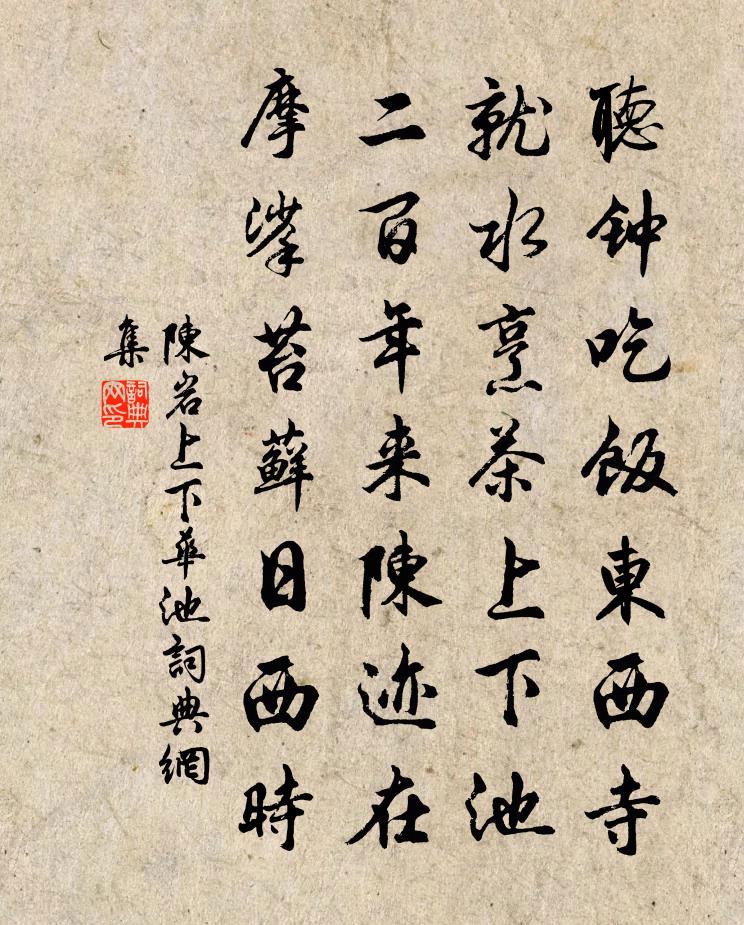 聽钟吃飯東西寺
就水烹茶上下池
二百年来陳迹在
摩挲苔蘚日西時
陳岩上下華池詞典網
集
詞典网印